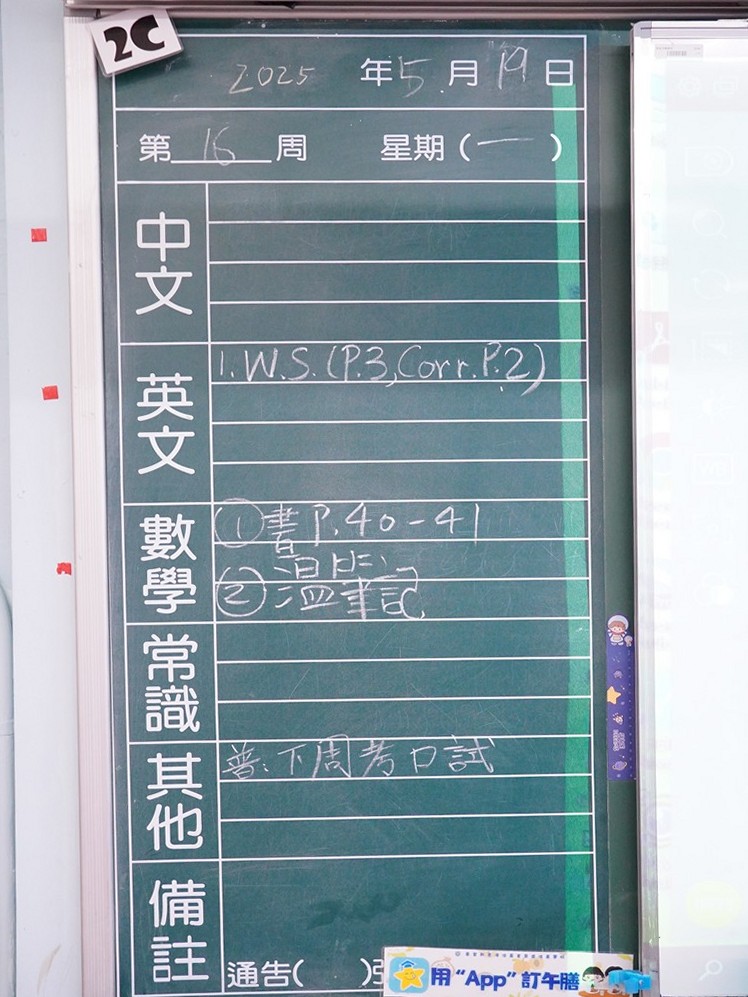 2C
2025 年 5 月 19 日
第 16 周 星期 ( 一 )
中文
英文
1. W.S. (P.3, Corr. P.2)
數學
① 書 P.40-41
② 溫筆記
常識
其他
普: 下周考口試
備註
通告( )
用 “App” 訂午膳